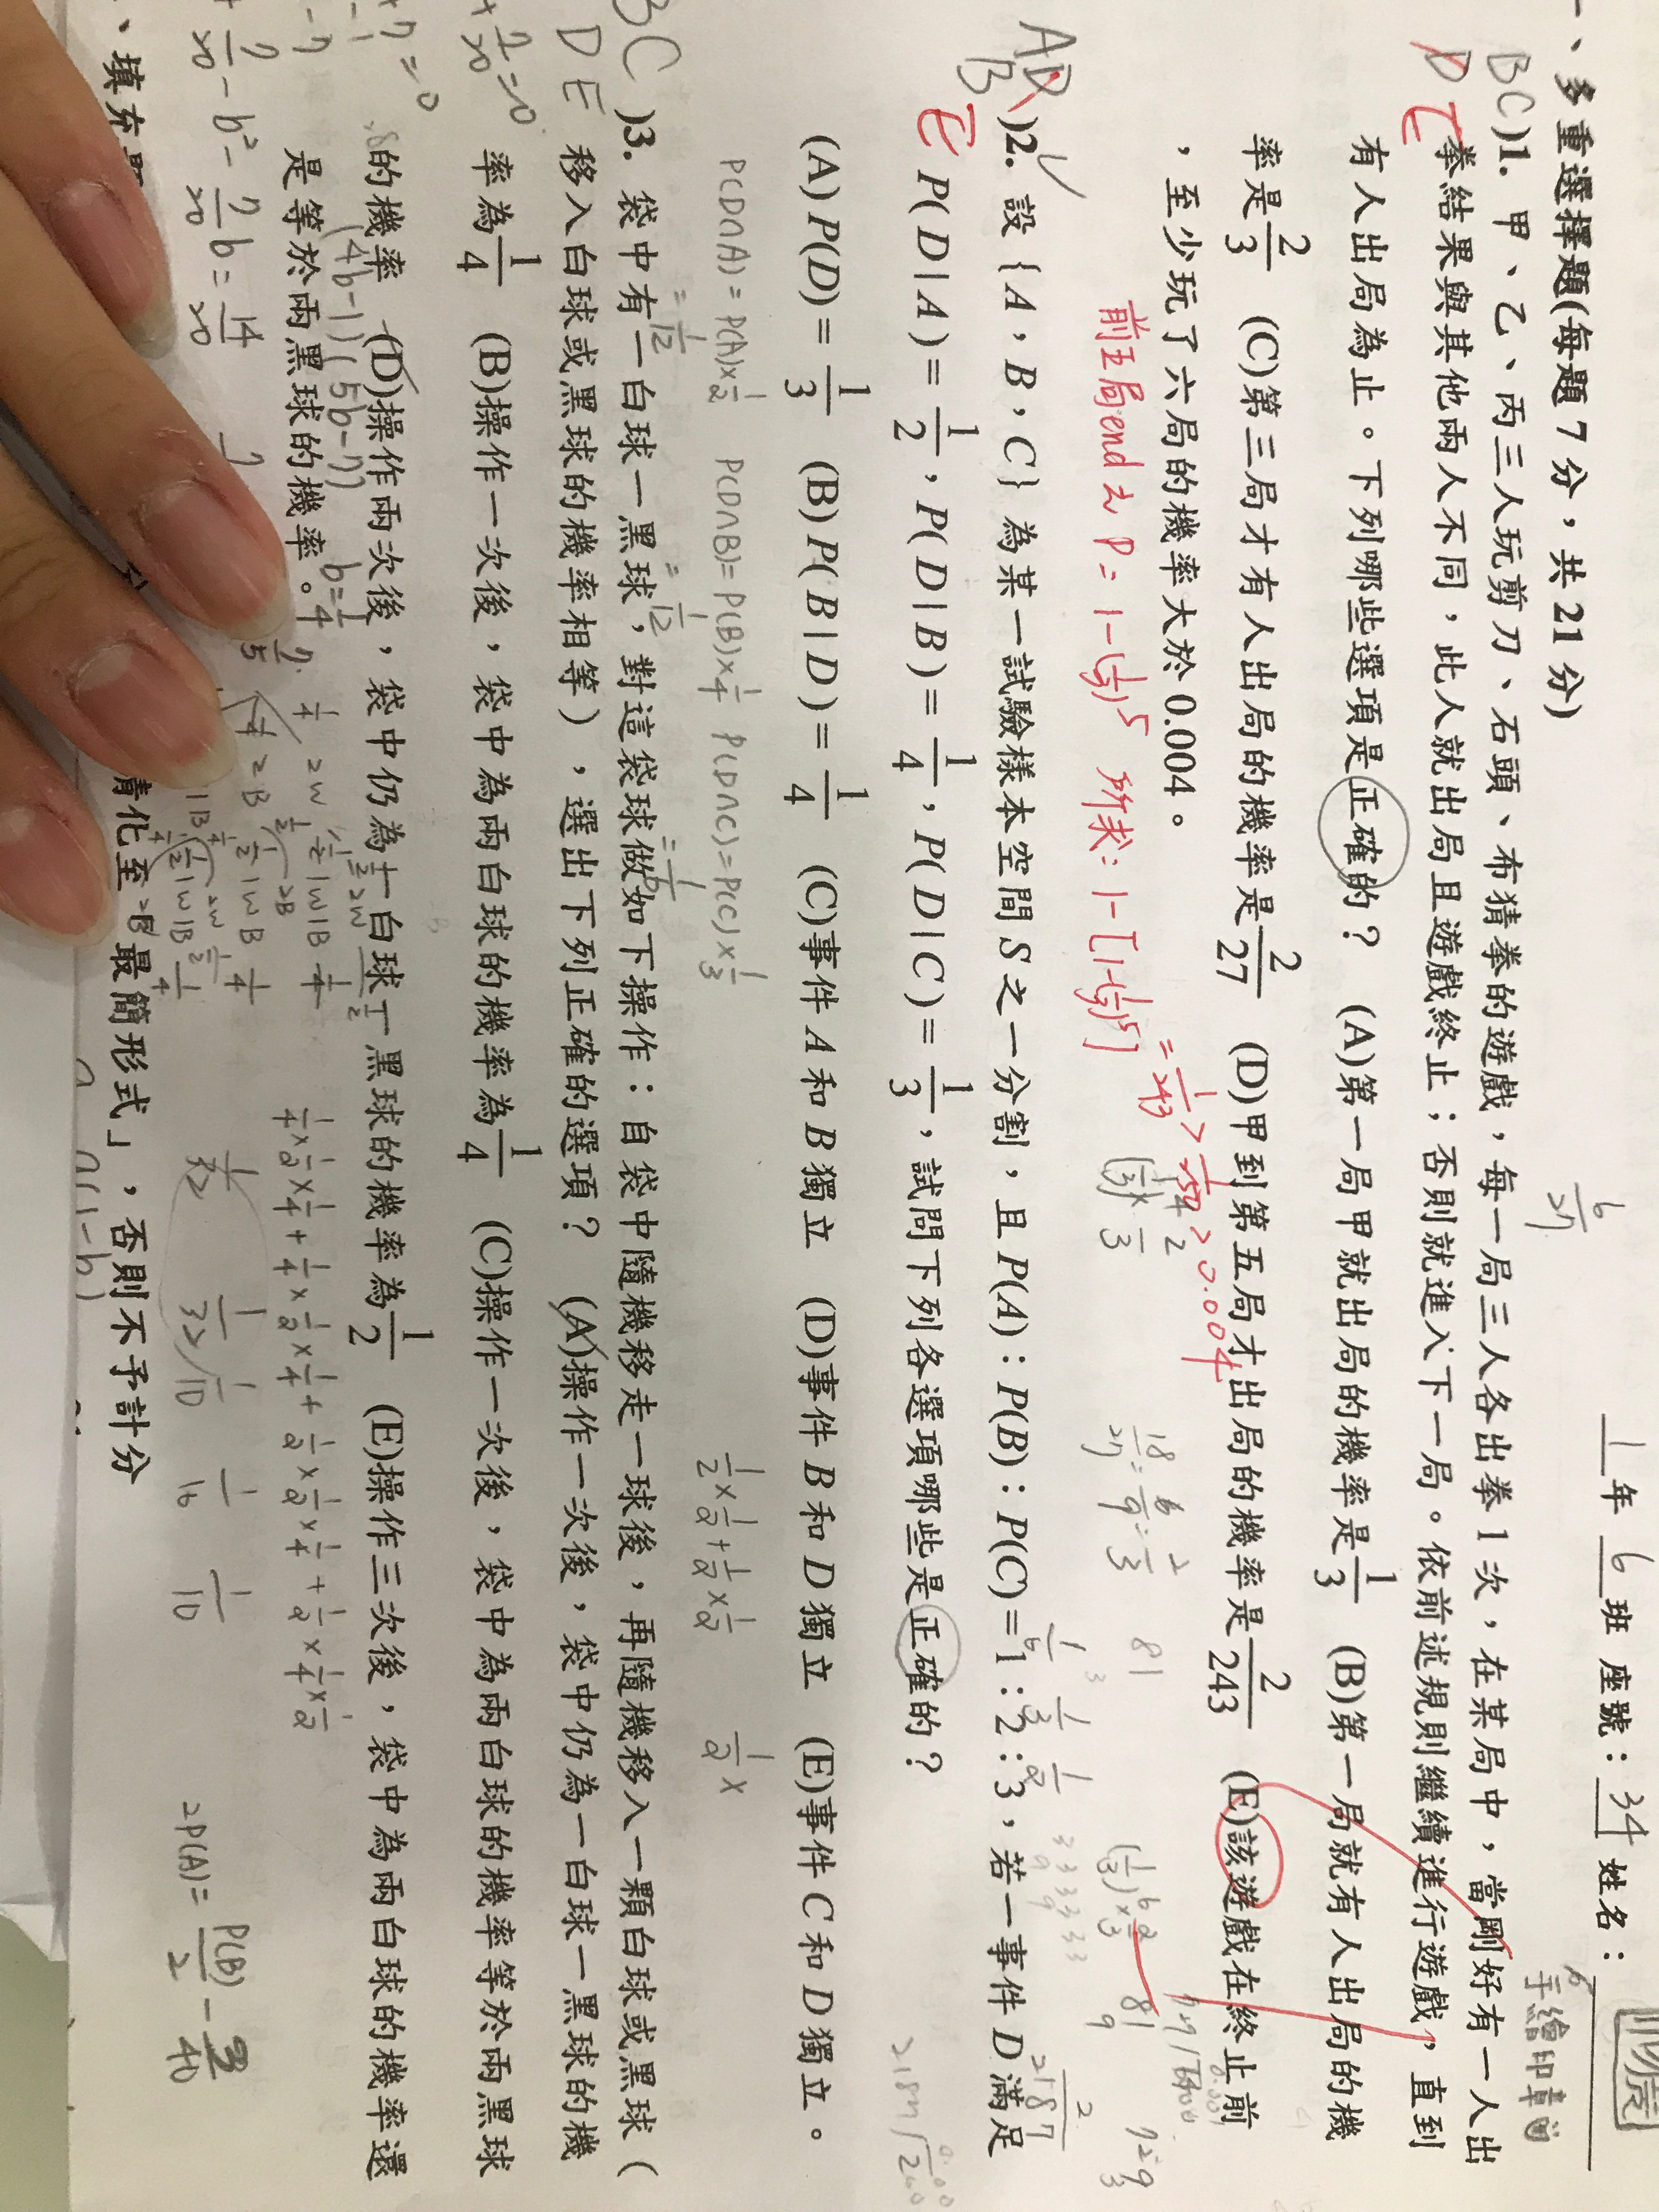 1年 6班 座號：34 姓名：
手繪印章
一、多重選擇題(每題 7 分，共 21 分)
6/27
BC
D E
)1. 甲、乙、丙三人玩剪刀、石頭、布猜拳的遊戲，每一局三人各出拳 1 次，在某局中，當剛好有一人出
拳結果與其他兩人不同，此人就出局且遊戲終止；否則就進入下一局。依前述規則繼續進行遊戲，直到
有人出局為止。下列哪些選項是正確的？ (A)第一局甲就出局的機率是1/3 (B)第一局就有人出局的機
率是2/3 (C)第三局才有人出局的機率是2/27 (D)甲到第五局才出局的機率是2/243 (E)該遊戲在終止前
，至少玩了六局的機率大於 0.004。
前五局end之P = 1-(1/3)^5 所求：1-[1-(1/3)^5]
= 1/243 > 1/250 > 0.004
18/27 = 6/9 = 2/3
81
729
2/2187
AD
B
E
)2. 設 {A，B，C} 為某一試驗樣本空間 S 之一分割，且 P(A)：P(B)：P(C)=1：2：3，若一事件 D 滿足
1/6 1/3 1/2
P(D|A)=1/2，P(D|B)=1/4，P(D|C)=1/3，試問下列各選項哪些是正確的？
(A) P(D)=1/3 (B) P(B|D)=1/4 (C)事件 A 和 B 獨立 (D)事件 B 和 D 獨立 (E)事件 C 和 D 獨立。
P(D∩A)=P(A)×1/2 P(D∩B)=P(B)×1/4 P(D∩C)=P(C)×1/3
=1/12 =1/12 =1/6
1/2×1/2+1/2×1/2 1/2×
BC
DE
)3. 袋中有一白球一黑球，對這袋球做如下操作：自袋中隨機移走一球後，再隨機移入一顆白球或黑球（
移入白球或黑球的機率相等），選出下列正確的選項？ (A)操作一次後，袋中仍為一白球一黑球的機
率為1/4 (B)操作一次後，袋中為兩白球的機率為1/4 (C)操作一次後，袋中為兩白球的機率等於兩黑球
的機率 (D)操作兩次後，袋中仍為一白球一黑球的機率為1/2 (E)操作三次後，袋中為兩白球的機率還
是等於兩黑球的機率。
(4b-1)(5b-7) b=1/4
1/4×1/2×1/4+1/4×1/2×1/4+1/2×1/2×1/4+1/2×1/4×1/2
7/20 - b² - 7/20 b = 14/20
1/32 1/32 1/10 1/16 1/10
2P(A)= P(B)/2 - 3/40
、填充題
最簡形式」，否則不予計分